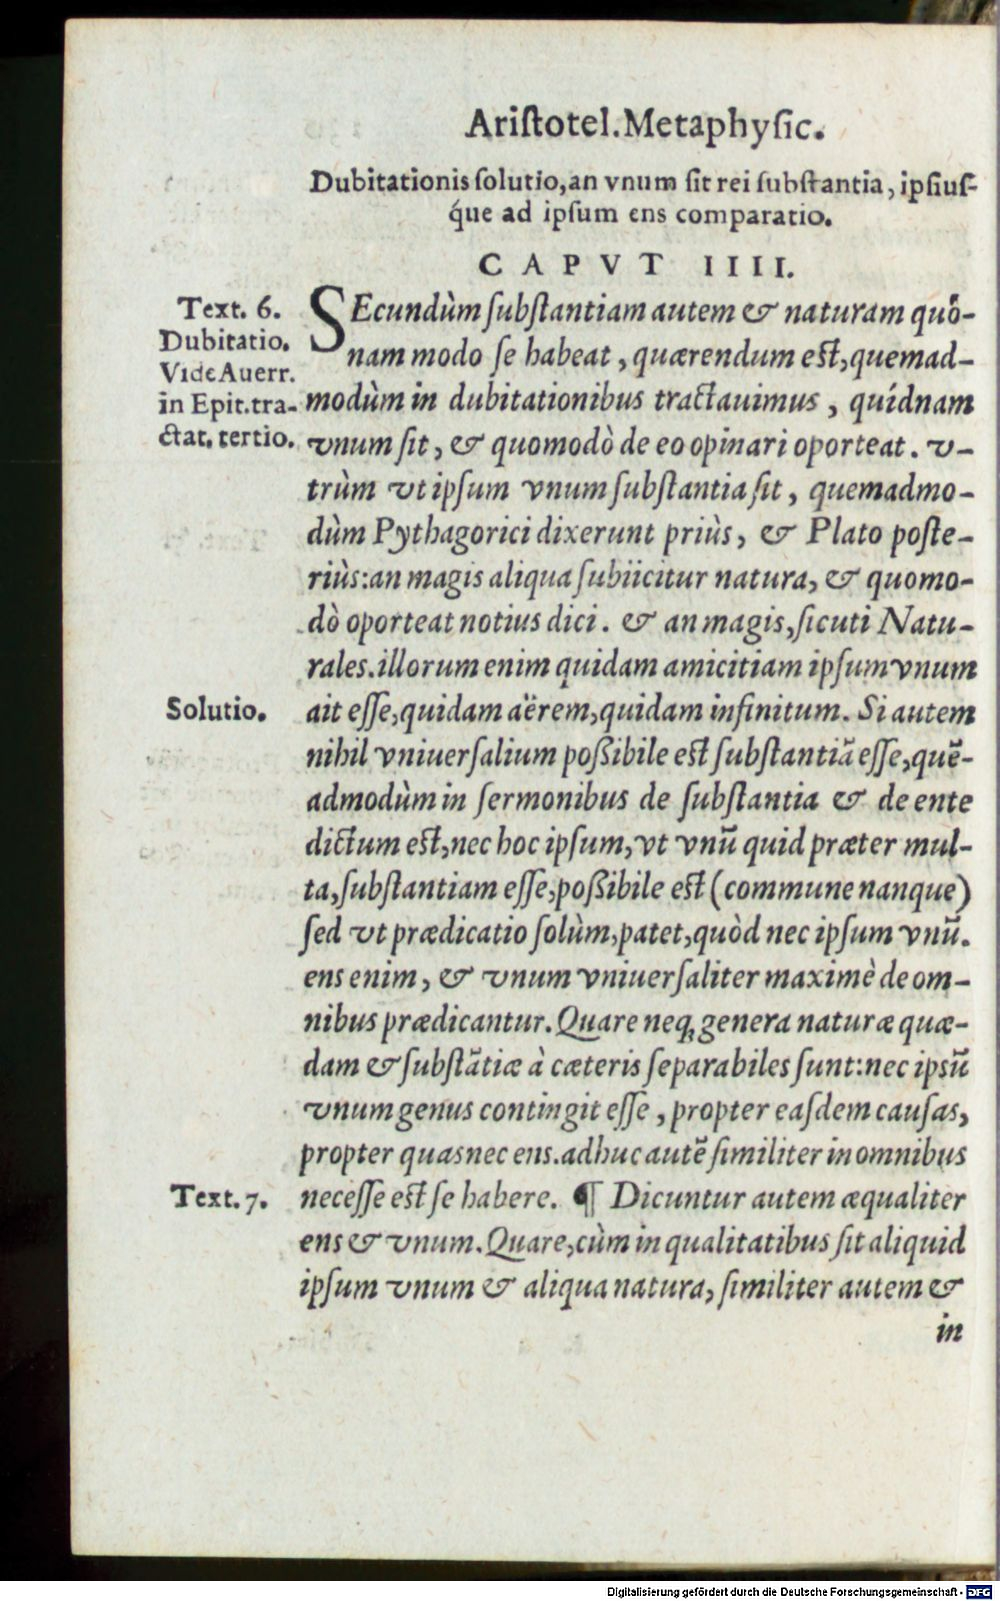 Ariſtotel.Metaphyſic.
Dubitationis ſolutio,an vnum ſit rei ſubſtantia, ipſiuſ-
q́ue ad ipſum ens comparatio.
CAPVT IIII.
Text. 6.
Dubitatio.
Vide Auerr.
in Epit.tra-
ctat. tertio.
SEcundùm ſubſtantiam autem & naturam quó-
nam modo ſe habeat, quærendum eſt,quemad-
modùm in dubitationibus tractauimus, quídnam
vnum ſit, & quomodò de eo opinari oporteat. v-
trùm vt ipſum vnum ſubſtantia ſit, quemadmo-
dùm Pythagorici dixerunt priùs, & Plato poſte-
riùs:an magis aliqua ſubiicitur natura, & quomo-
dò oporteat notius dici. & an magis,ſicuti Natu-
rales.illorum enim quidam amicitiam ipſum vnum
Solutio.
ait eſſe,quidam aërem,quidam infinitum. Si autem
nihil vniuerſalium poßibile eſt ſubſtantiã eſſe,quē-
admodùm in ſermonibus de ſubſtantia & de ente
dictum eſt,nec hoc ipſum,vt vnũ quid præter mul-
ta,ſubſtantiam eſſe,poßibile eſt (commune nanque)
ſed vt prædicatio ſolùm,patet,quòd nec ipſum vnũ.
ens enim, & vnum vniuerſaliter maximè de om-
nibus prædicantur. Quare neq; genera naturæ quæ-
dam & ſubſtãtiæ à cæteris ſeparabiles ſunt:nec ipsũ
vnum genus contingit eſſe, propter eaſdem cauſas,
propter quas nec ens.adhuc autē ſimiliter in omnibus
Text. 7.
neceſſe eſt ſe habere. ¶ Dicuntur autem æqualiter
ens & vnum. Quare,cùm in qualitatibus ſit aliquid
ipſum vnum & aliqua natura, ſimiliter autem &
in
Digitalisierung gefördert durch die Deutsche Forschungsgemeinschaft - DFG